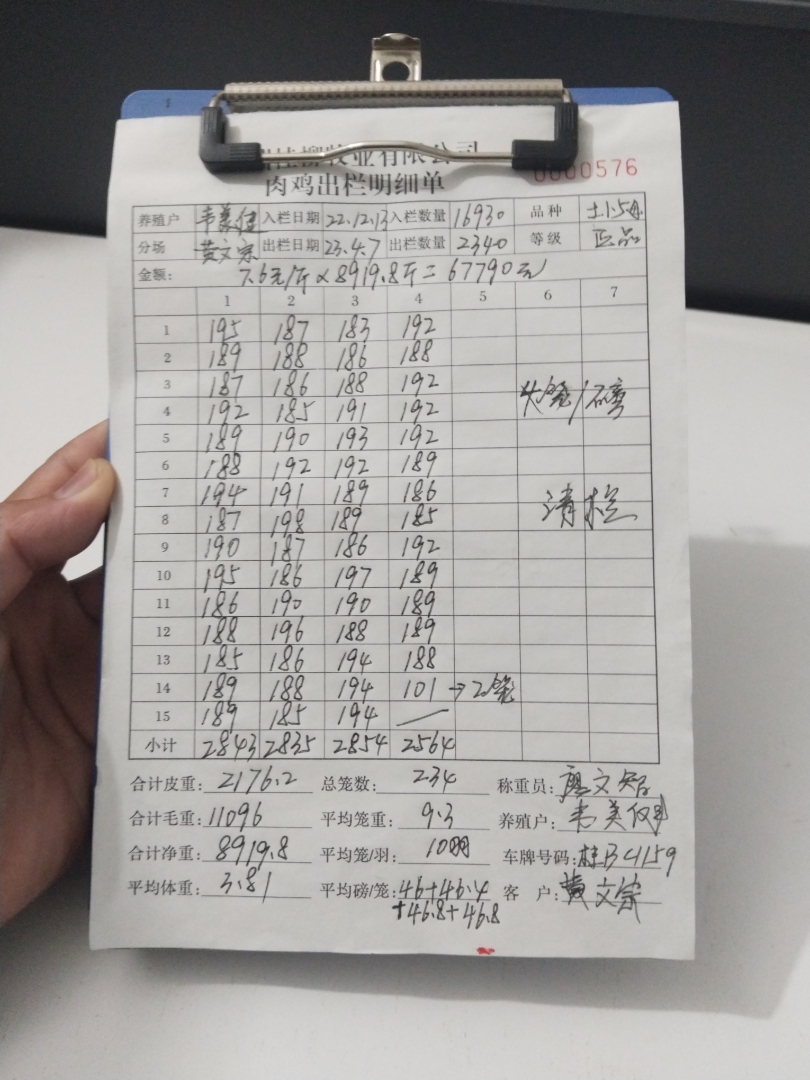 牧业有限公司
肉鸡出栏明细单
0000576
养殖户 韦美健 入栏日期 22.12.13 入栏数量 16930 品种 土1.5母
分场 黄文宗 出栏日期 23.4.7 出栏数量 2340 等级 正品
金额: 7.6元/斤×8919.8斤=67790元
1 2 3 4 5 6 7
1 195 187 183 192
2 189 188 186 188
3 187 186 188 192 4笼/磅
4 192 185 191 192
5 189 190 193 192
6 188 192 192 189
7 194 191 189 186
8 187 198 189 185 清栏
9 190 187 186 192
10 195 186 197 189
11 186 190 190 189
12 188 196 188 189
13 185 186 194 188
14 189 188 194 101 →2笼
15 189 185 194 —
小计 2843 2835 2854 2564
合计皮重: 2176.2 总笼数: 234 称重员: 文
合计毛重: 11096 平均笼重: 9.3 养殖户: 韦美健
合计净重: 8919.8 平均笼/羽: 10羽 车牌号码: 桂BC4159
平均体重: 3.81 平均磅/笼: 46+46.4 客 户: 黄文宗
+46.8+46.8